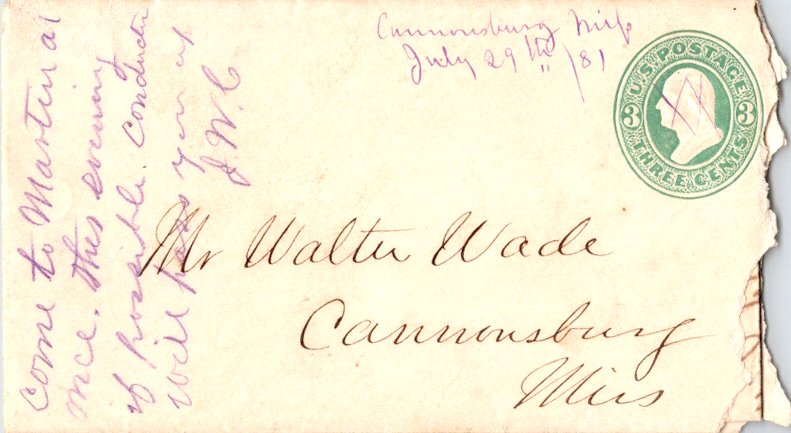 Cannonsburg Miss
July 29th /81
U.S. POSTAGE
3 3
THREE CENTS
Mr Walter Wade
Cannonsburg
Miss
come to Martin at
once. this evening
if possible. Conductor
will pass you up
J. W. C